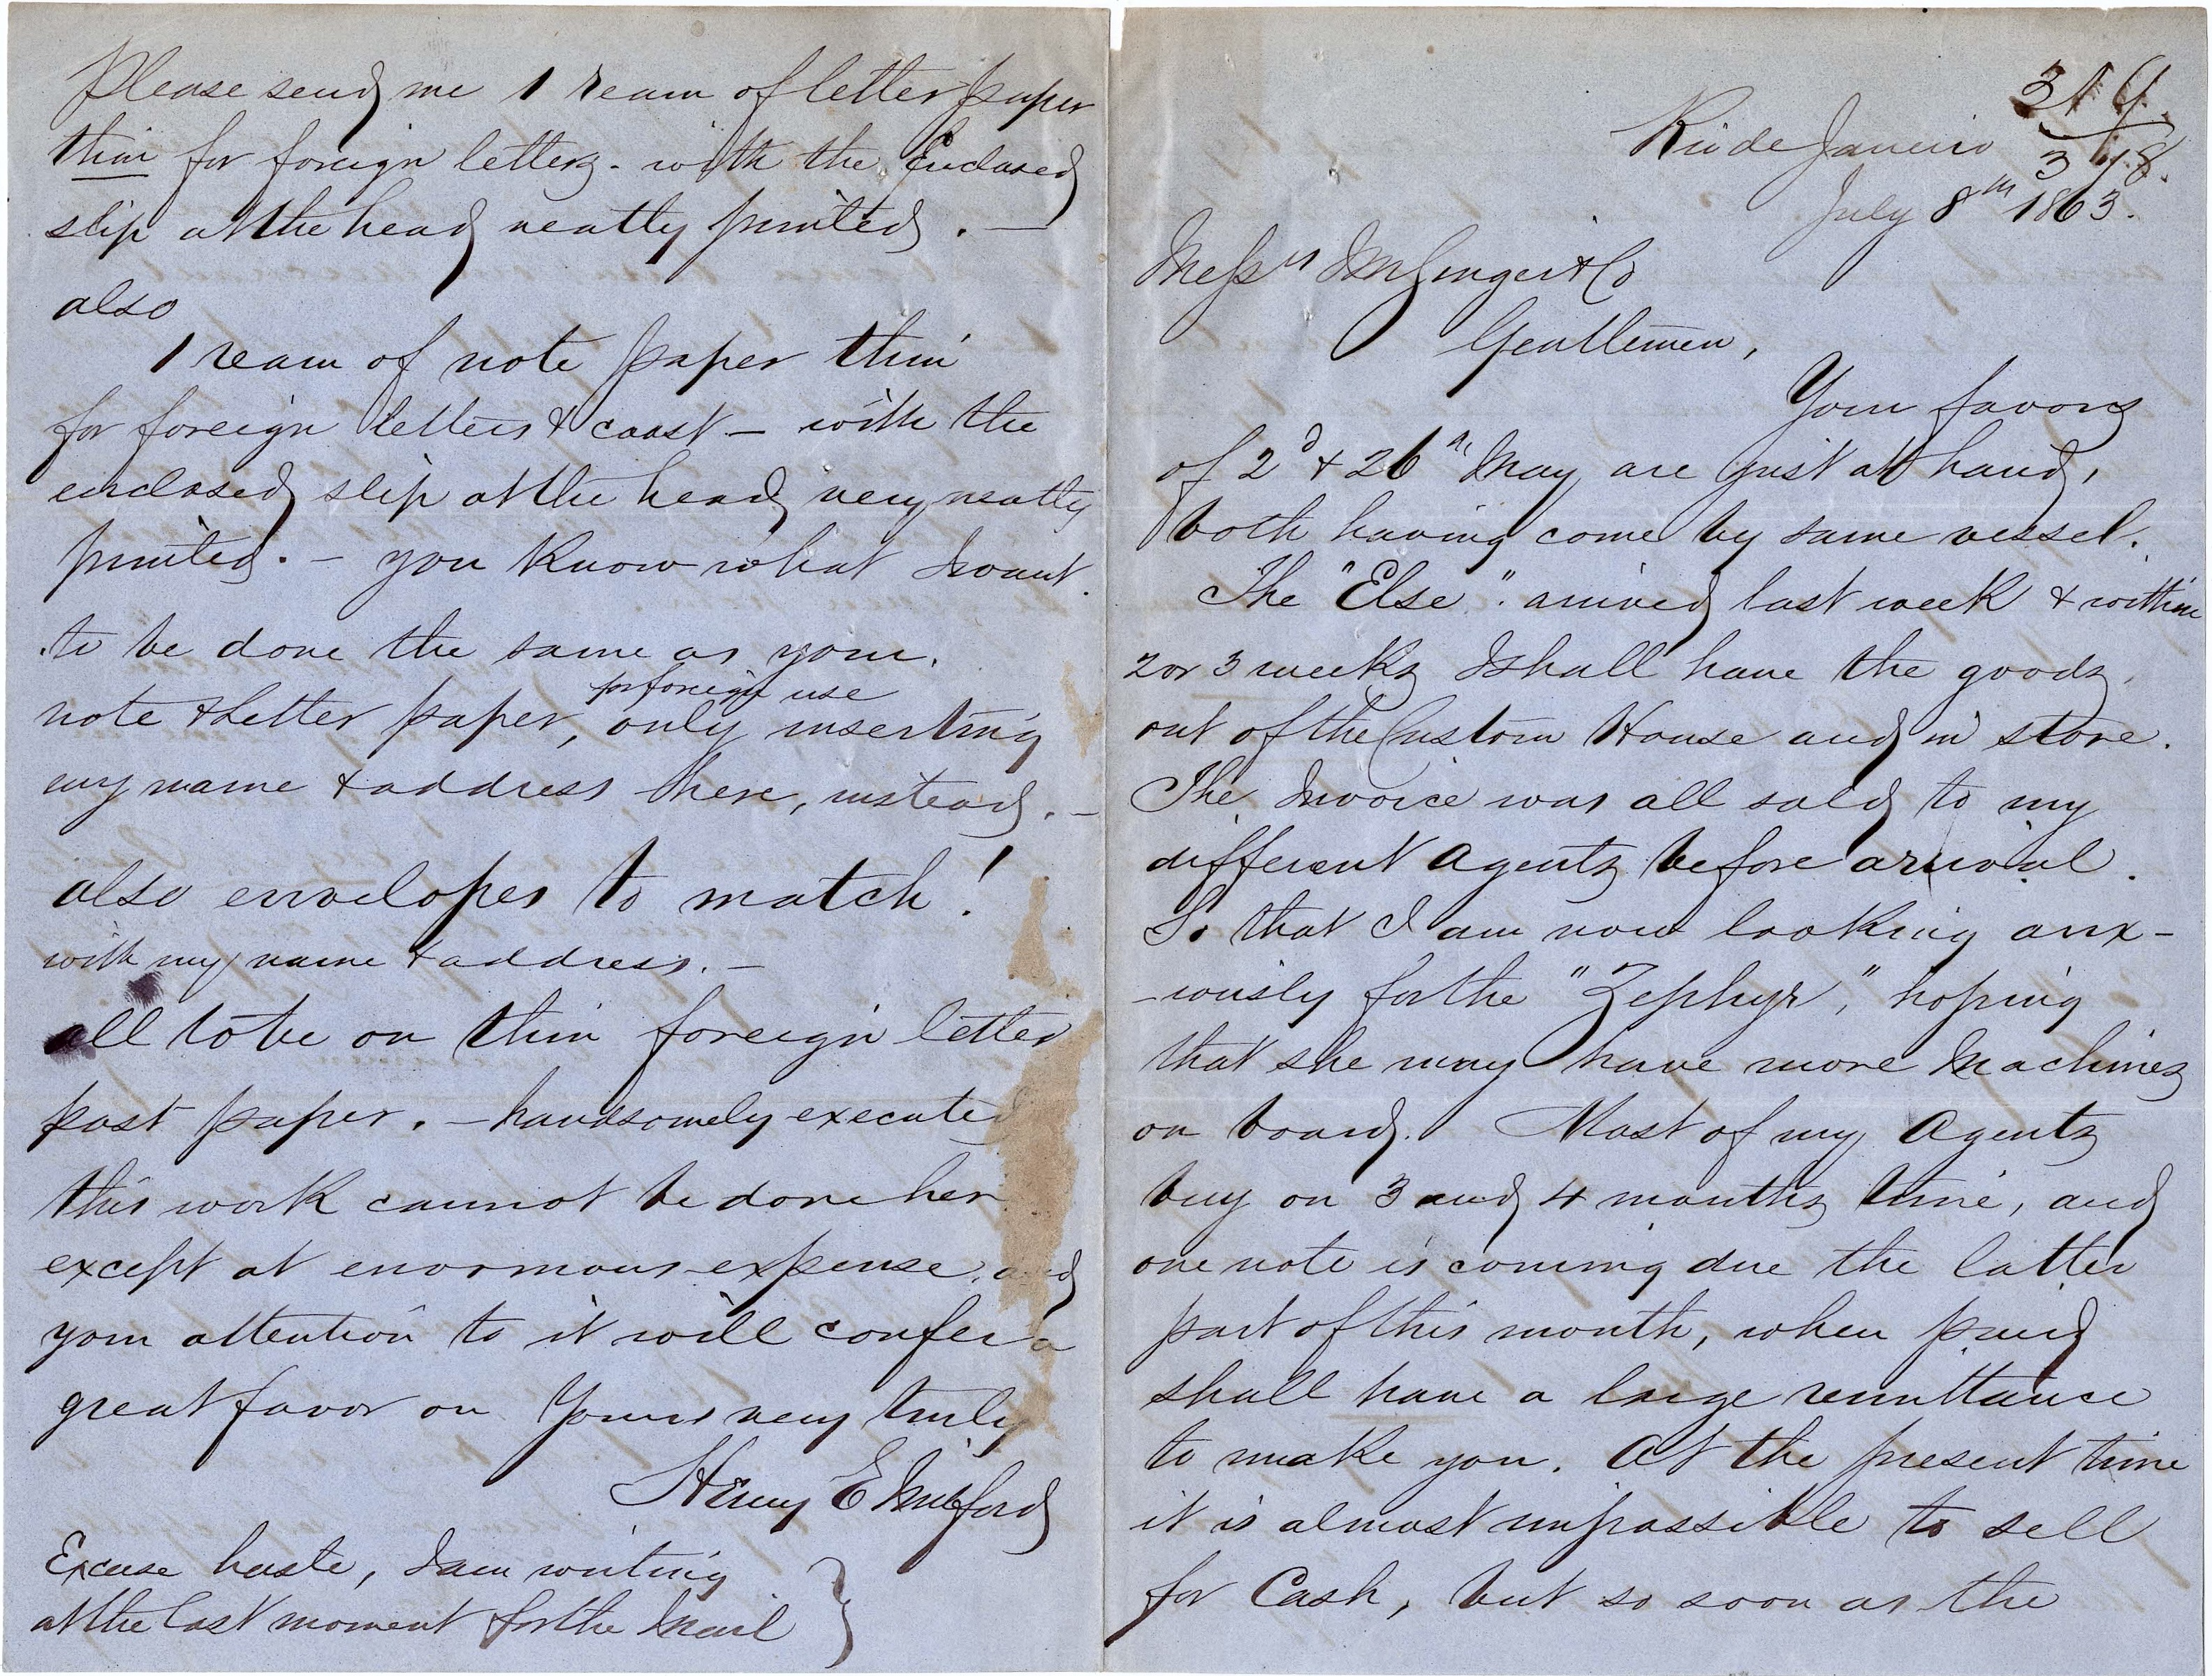 Please send me 1 ream of letter paper
thin for foreign letters - with the Enclosed
slip at the head neatly printed. —
also
1 ream of note paper thin
for foreign letters & coast — with the
enclosed slip at the head very neatly
printed. — you know what I want.
to be done the same as your
for foreign use
note & letter paper, only inserting
my name & address here, instead. —
also envelopes to match!
with my name & address. —
all to be on thin foreign letter
post paper. — handsomely executed
this work cannot be done her
except at enormous expense, and
your attention to it will confer a
great favor on Yours very truly
Henry E Milford
Excuse haste, I am writing
at the last moment for the Mail
Rio de Janeiro
318.
July 8th 1863.
Messrs I M Singer & Co
Gentlemen,
Your favors
of 2d & 26th May are just at hand,
both having come by same vessel.
The "Else". arrived last week & within
2 or 3 weeks I shall have the goods,
out of the Custom House and in store.
The Invoice was all sold to my
different Agents before arrival.
So that I am now looking anx-
-iously for the "Zephyr," hoping
that she may have more Machines
on board. Most of my Agents
buy on 3 and 4 months time, and
one note is coming due the latter
part of this month, when paid
shall have a large remittance
to make you. At the present time
it is almost impossible to sell
for Cash, but so soon as the